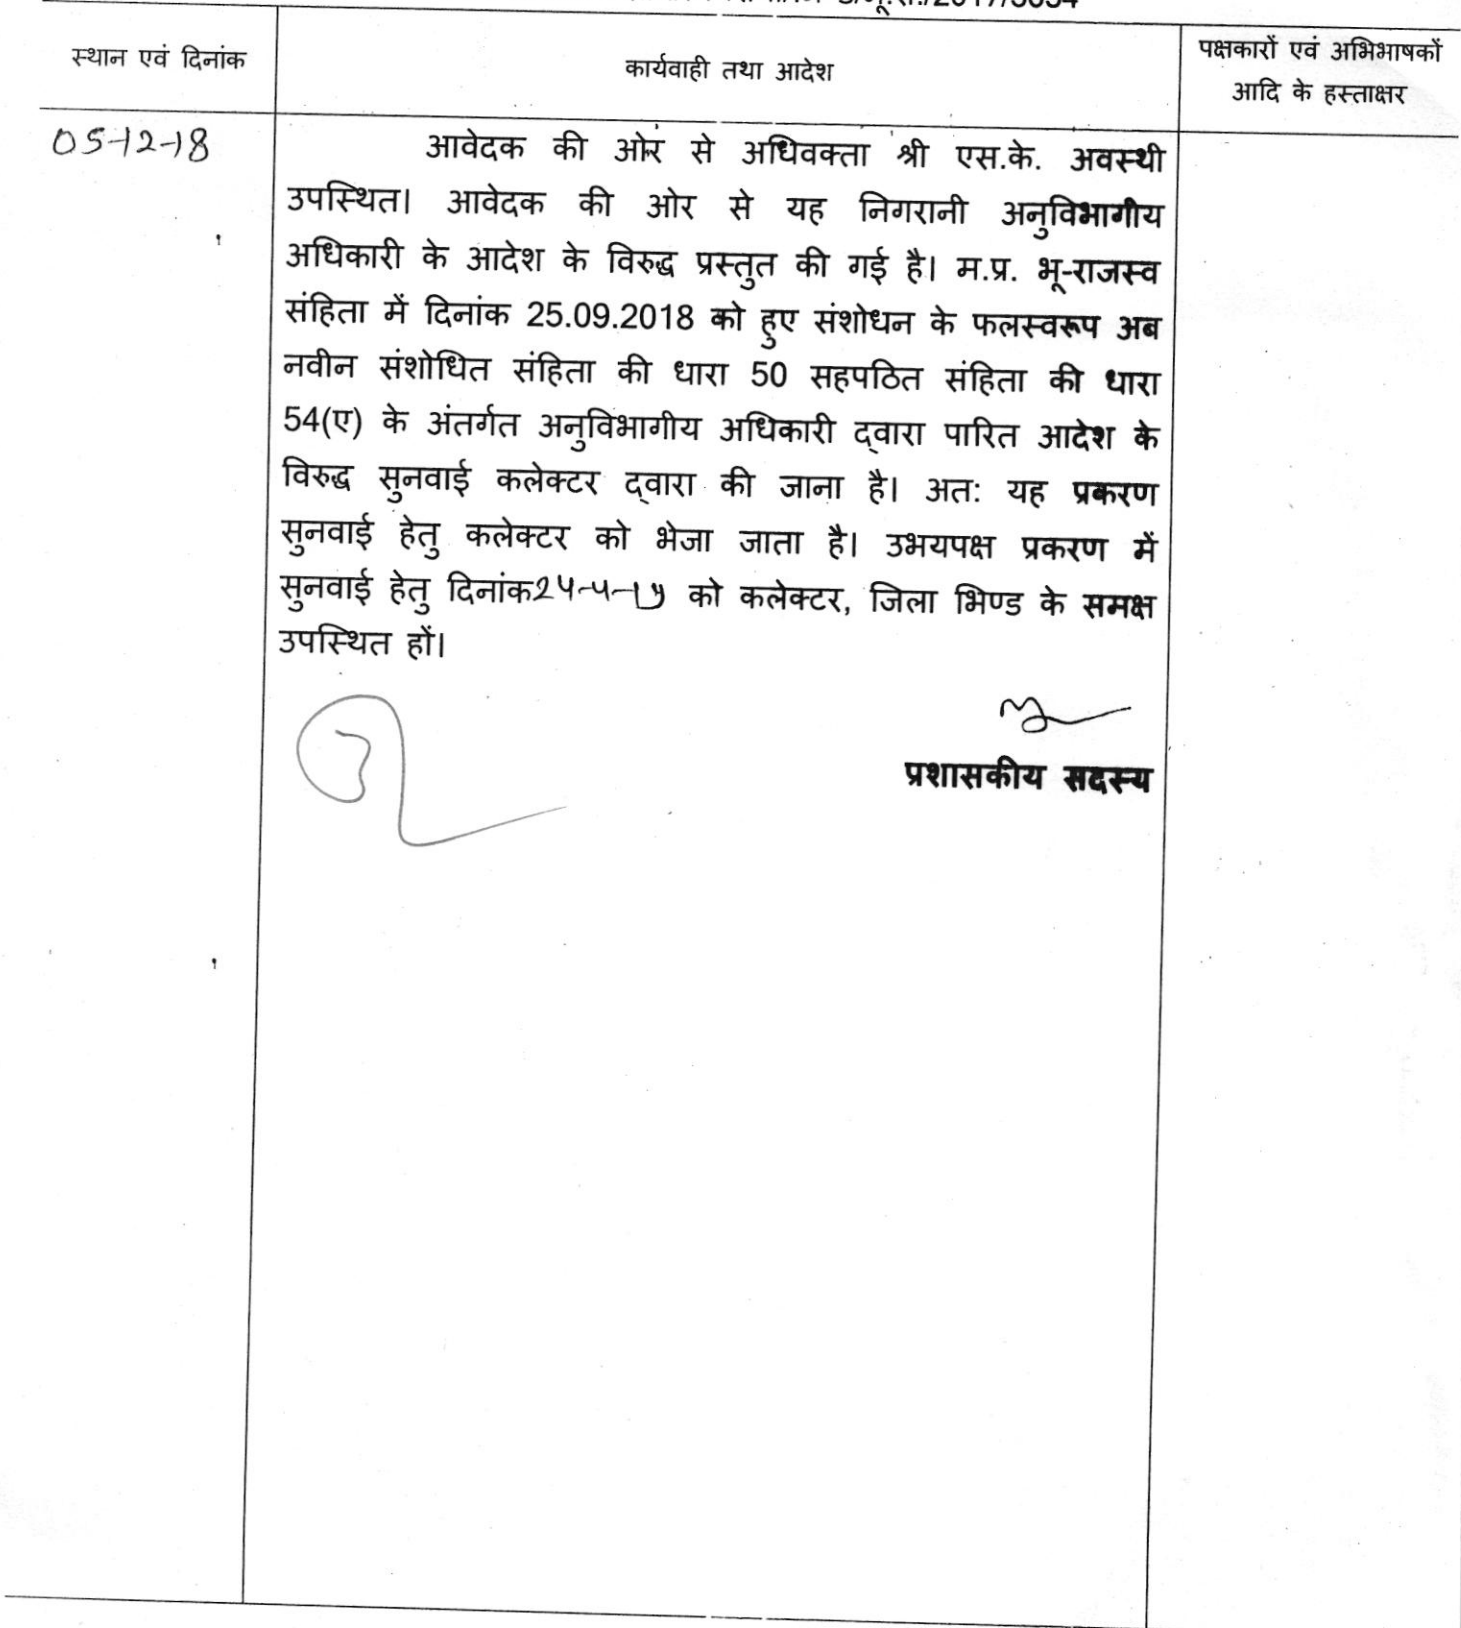 स्थान एवं दिनांक
कार्यवाही तथा आदेश
पक्षकारों एवं अभिभाषकों
आदि के हस्ताक्षर
05-12-18
आवेदक की ओर से अधिवक्ता श्री एस.के. अवस्थी
उपस्थित। आवेदक की ओर से यह निगरानी अनुविभागीय
अधिकारी के आदेश के विरुद्ध प्रस्तुत की गई है। म.प्र. भू-राजस्व
संहिता में दिनांक 25.09.2018 को हुए संशोधन के फलस्वरूप अब
नवीन संशोधित संहिता की धारा 50 सहपठित संहिता की धारा
54(ए) के अंतर्गत अनुविभागीय अधिकारी द्वारा पारित आदेश के
विरुद्ध सुनवाई कलेक्टर द्वारा की जाना है। अत: यह प्रकरण
सुनवाई हेतु कलेक्टर को भेजा जाता है। उभयपक्ष प्रकरण में
सुनवाई हेतु दिनांक को कलेक्टर, जिला भिण्ड के समक्ष
उपस्थित हों।
प्रशासकीय सदस्य